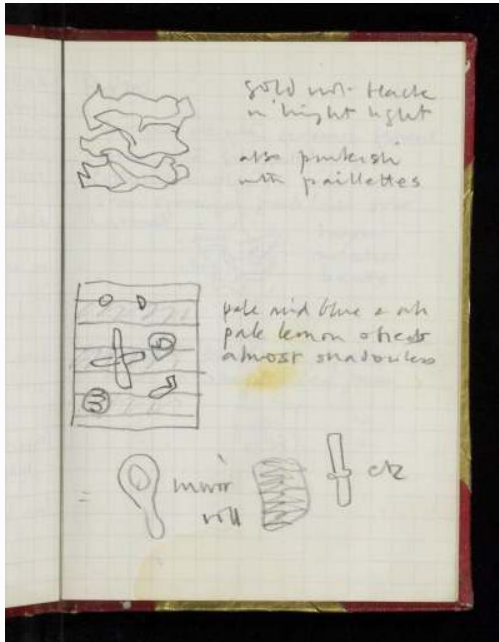 gold not black
in bright light
also pinkish
with paillettes
pale and blue & oh
pale lemon
almost shadowless
mirror
roll
etc